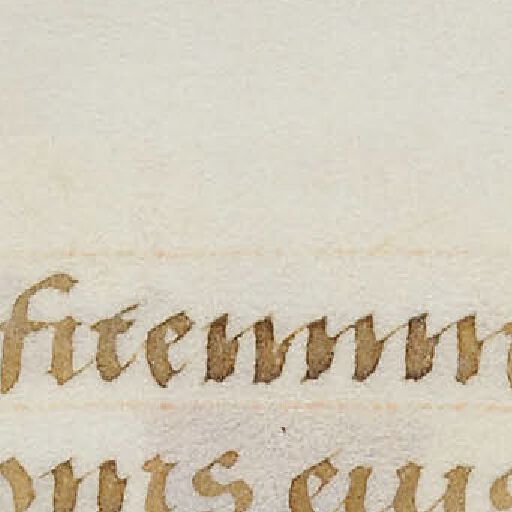 fitemini
onis eius